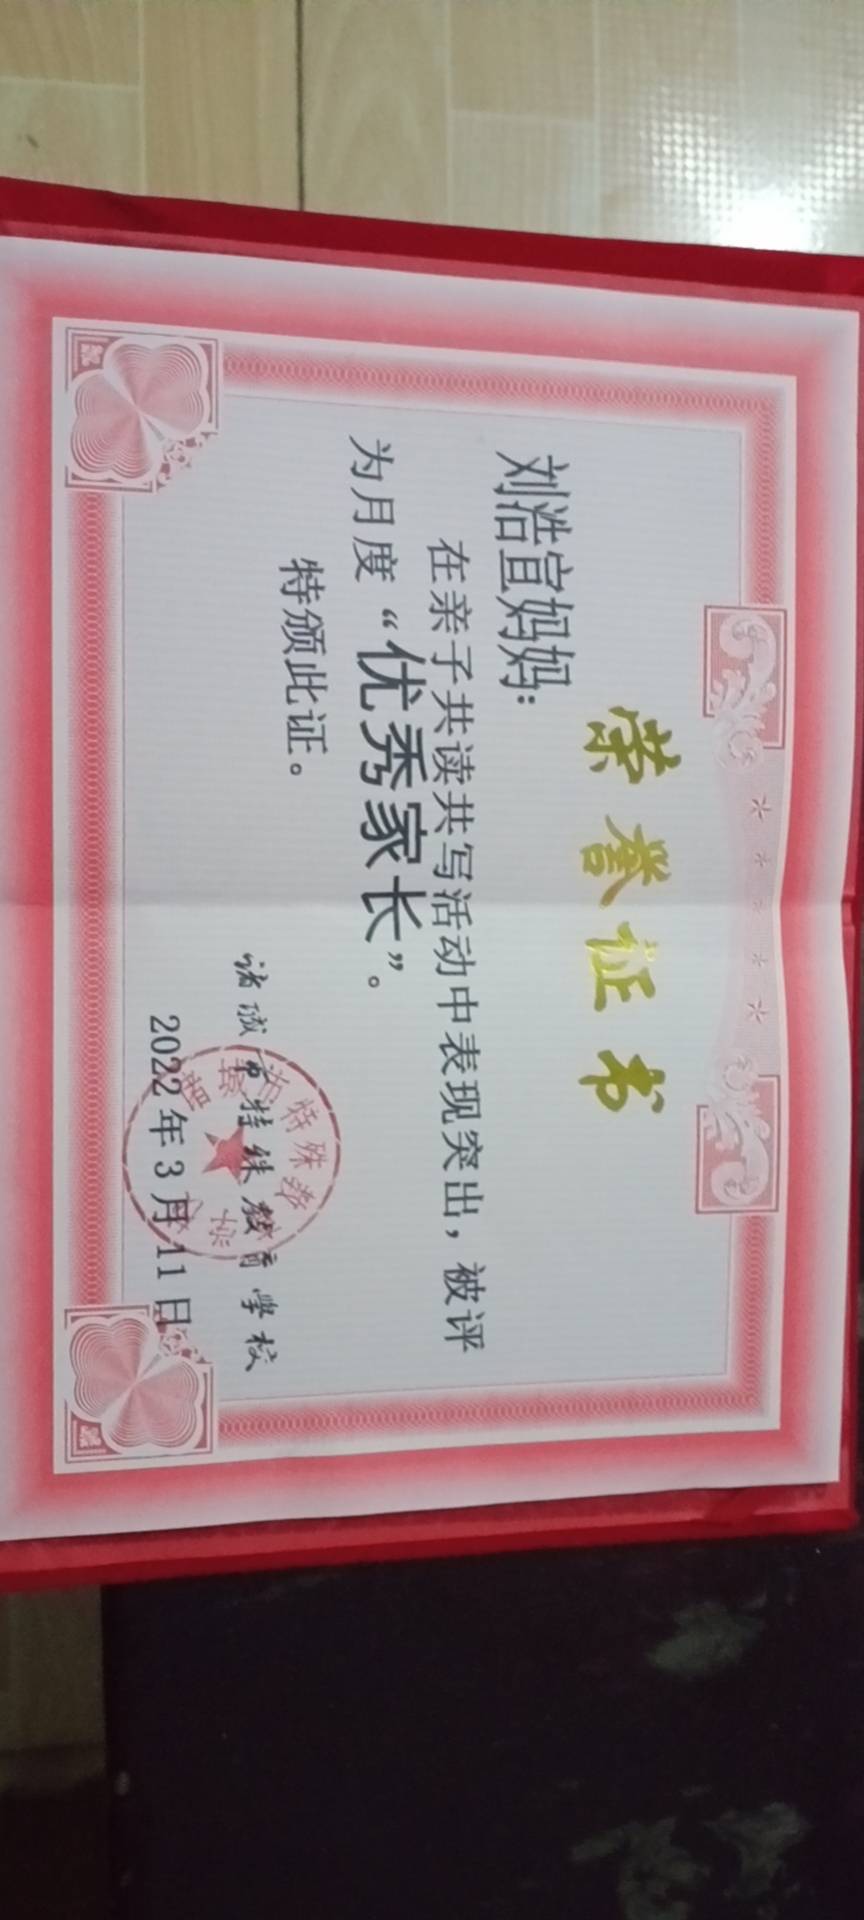 荣誉证书
刘浩宣妈妈：
在亲子共读共写活动中表现突出，被评
为月度“优秀家长”。
特颁此证。
诸城市特殊教育学校
2022年3月11日